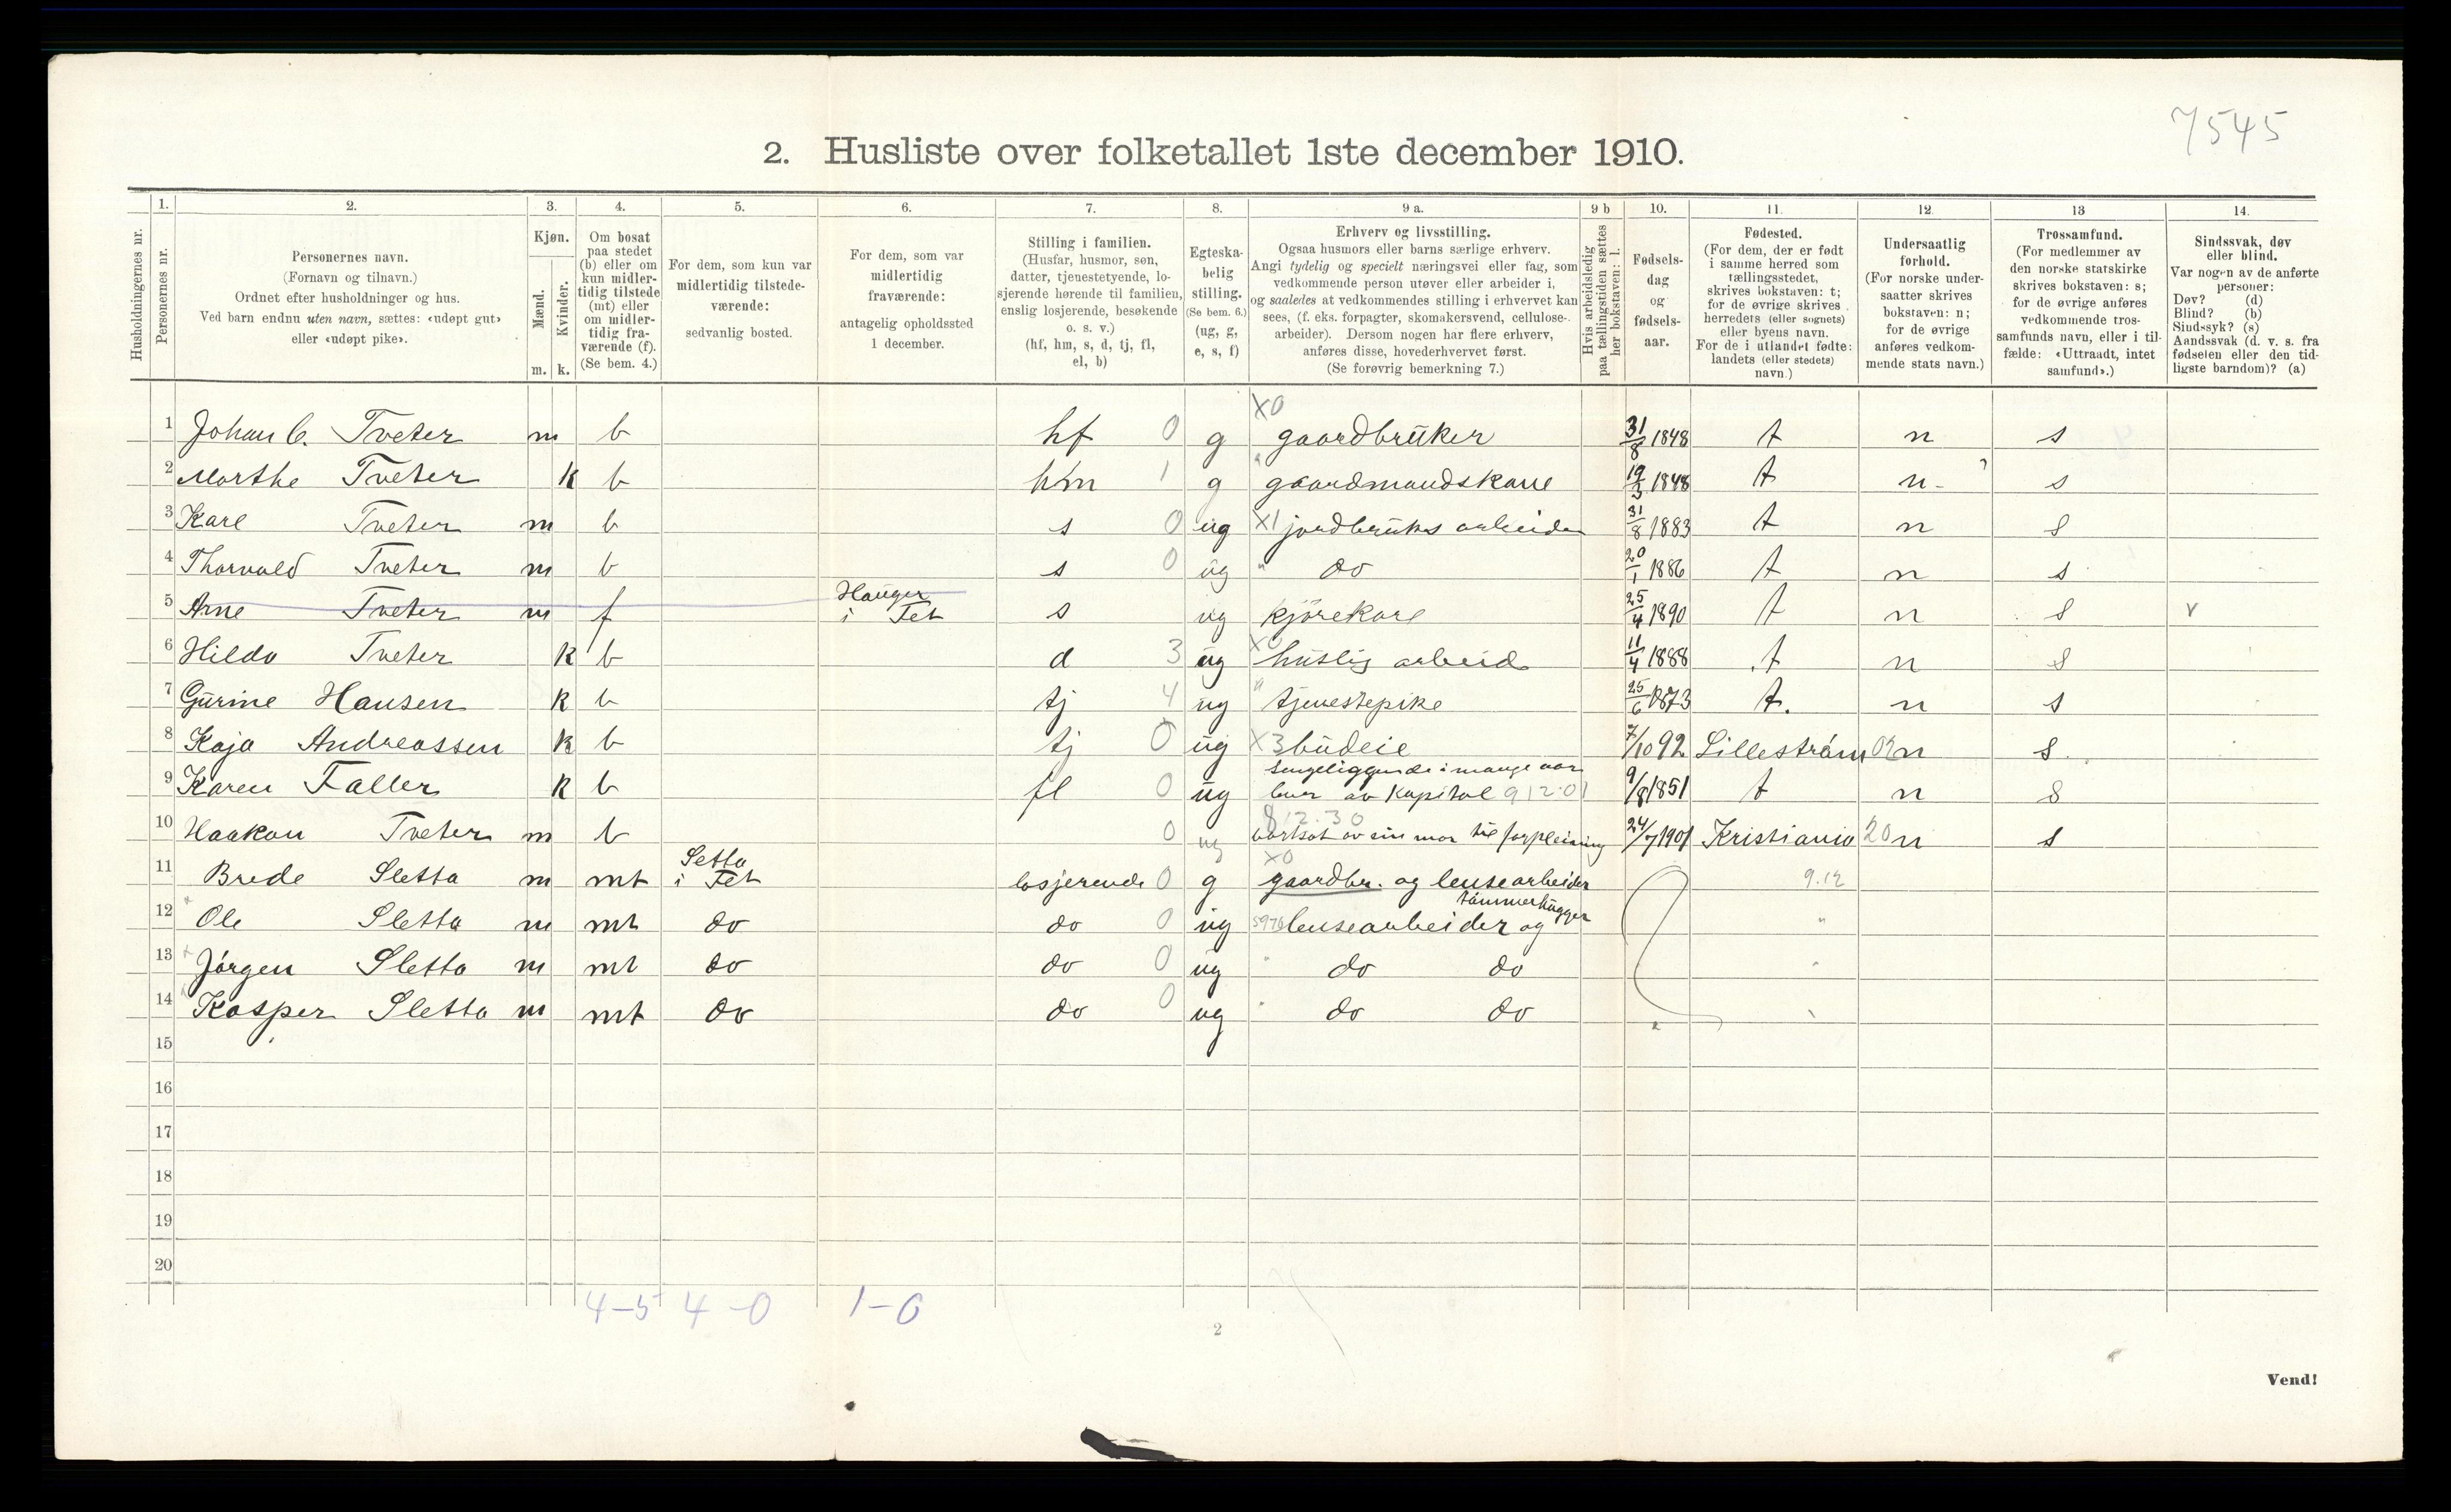 7545
2. Husliste over folketallet 1ste december 1910.
1. 2. 3. 4. 5. 6. 7. 8. 9 a. 9 b 10. 11. 12. 13 14.
Husholdningernes nr.
Personernes nr.
Personernes navn.
(Fornavn og tilnavn.)
Ordnet efter husholdninger og hus.
Ved barn endnu uten navn, sættes: «udøpt gut»
eller «udøpt pike».
Kjøn.
Mænd.
Kvinder.
m. k.
Om bosat
paa stedet
(b) eller om
kun midler-
tidig tilstede
(mt) eller
om midler-
tidig fra-
værende (f).
(Se bem. 4.)
For dem, som kun var
midlertidig tilstede-
værende:
sedvanlig bosted.
For dem, som var
midlertidig
fraværende:
antagelig opholdssted
1 december.
Stilling i familien.
(Husfar, husmor, søn,
datter, tjenestetyende, lo-
sjerende hørende til familien,
enslig losjerende, besøkende
o. s. v.)
(hf, hm, s, d, tj, fl,
el, b)
Egteska-
belig
stilling.
(Se bem. 6.)
(ug, g,
e, s, f)
Erhverv og livsstilling.
Ogsaa husmors eller barns særlige erhverv.
Angi tydelig og specielt næringsvei eller fag, som
vedkommende person utøver eller arbeider i,
og saaledes at vedkommendes stilling i erhvervet kan
sees, (f. eks. forpagter, skomakersvend, cellulose-
arbeider). Dersom nogen har flere erhverv,
anføres disse, hovederhvervet først.
(Se forøvrig bemerkning 7.)
Hvis arbeidsledig
paa tællingstiden sættes
her bokstaven: l.
Fødsels-
dag
og
fødsels-
aar.
Fødested.
(For dem, der er født
i samme herred som
tællingsstedet,
skrives bokstaven: t;
for de øvrige skrives
herredets (eller sognets)
eller byens navn.
For de i utlandet fødte:
landets (eller stedets)
navn.)
Undersaatlig
forhold.
(For norske under-
saatter skrives
bokstaven: n;
for de øvrige
anføres vedkom-
mende stats navn.)
Trossamfund.
(For medlemmer av
den norske statskirke
skrives bokstaven: s;
for de øvrige anføres
vedkommende tros-
samfunds navn, eller i til-
fælde: «Uttraadt, intet
samfund».)
Sindssvak, døv
eller blind.
Var nogen av de anførte
personer:
Døv? (d)
Blind? (b)
Sindssyk? (s)
Aandssvak (d. v. s. fra
fødselen eller den tid-
ligste barndom)? (a)
X0
1 Johan C. Tveter m b hf 0 g gaardbruker 31/8 1848 t n s
2 Marthe Tveter k b hm 1 g " gaardmandskone 19/3 1848 t n - s
3 Karl Tveter m b s 0 ug X1 jordbruks arbeider 31/8 1883 t n s
4 Thorvald Tveter m b s 0 ug " do 20/1 1886 t n s
Hauger
5 Arne Tveter m f i Fet s ug kjörekarl 25/4 1890 t n s v
6 Hilda Tveter k b d 3 ug X0 huslig arbeide 11/4 1888 t n s
7 Gurine Hansen k b tj 4 ug " tjenestepike 25/6 1873 t. n s
8 Kaja Andreassen k b tj 0 ug X3 budeie 7/10 92 Lilleström 02 n s
sengeliggende i mange aar
9 Karen Faller k b fl 0 ug lever av kapital 912.01 9/8 1851 t n s
812.30
10 Haakon Tveter m b 0 ug bortsat av sin mor til forpleining 24/7 1901 Kristiania 20 n s
Setta X0
11 Brede Sletta m mt i Fet losjerende 0 g gaardbr. og lensearbeider 9.12
tömmerhugger
12 Ole Sletta m mt do do 0 ug lensearbeider og "
13 Jörgen Sletta m mt do do 0 ug " do do "
14 Kasper Sletta m mt do do 0 ug " do do
15
16
17
18
19
20
4-5 4-0 1-0
2
Vend!